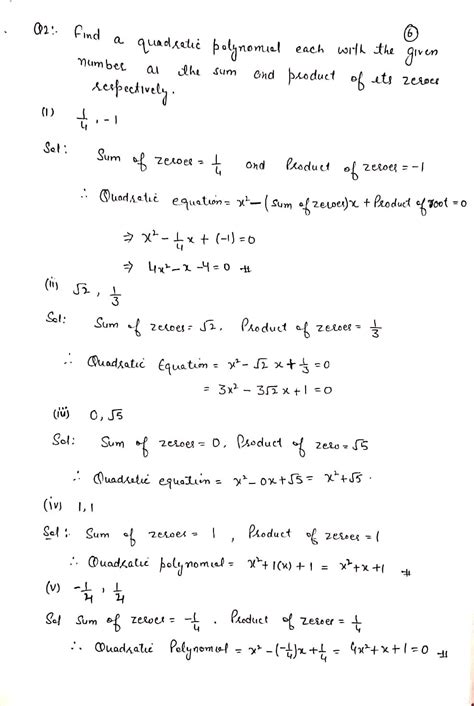 6
Q2:. Find a quadratic polynomial each with the given
number as the sum and product of its zeroes
respectively.
(i) 1/4, -1
Sol: Sum of zeroes = 1/4 and Product of zeroes = -1
∴ Quadratic equation = x² - (Sum of zeroes)x + Product of root = 0
⇒ x² - 1/4 x + (-1) = 0
⇒ 4x² - x - 4 = 0
(ii) √2, 1/3
Sol: Sum of zeroes = √2, Product of zeroes = 1/3
∴ Quadratic Equation = x² - √2 x + 1/3 = 0
= 3x² - 3√2 x + 1 = 0
(iii) 0, √5
Sol: Sum of zeroes = 0, Product of zero = √5
∴ Quadratic equation = x² - 0x + √5 = x² + √5.
(iv) 1, 1
Sol: Sum of zeroes = 1, Product of zeroes = 1
∴ Quadratic polynomial = x² + 1(x) + 1 = x² + x + 1
(v) -1/4, 1/4
Sol Sum of zeroes = -1/4. Product of zeroes = 1/4
∴ Quadratic Polynomial = x² - (-1/4)x + 1/4 = 4x² + x + 1 = 0